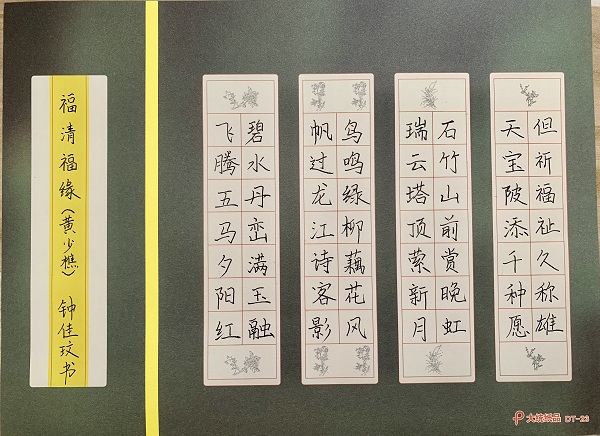 福清福缘（黄少樵） 钟佳玟书
飞腾五马夕阳红
碧水丹峦满玉融
帆过龙江诗客影
鸟鸣绿柳藕花风
瑞云塔顶萦新月
石竹山前赏晚虹
天宝陂添千种愿
但祈福祉久称雄
大统纸品 DT-23